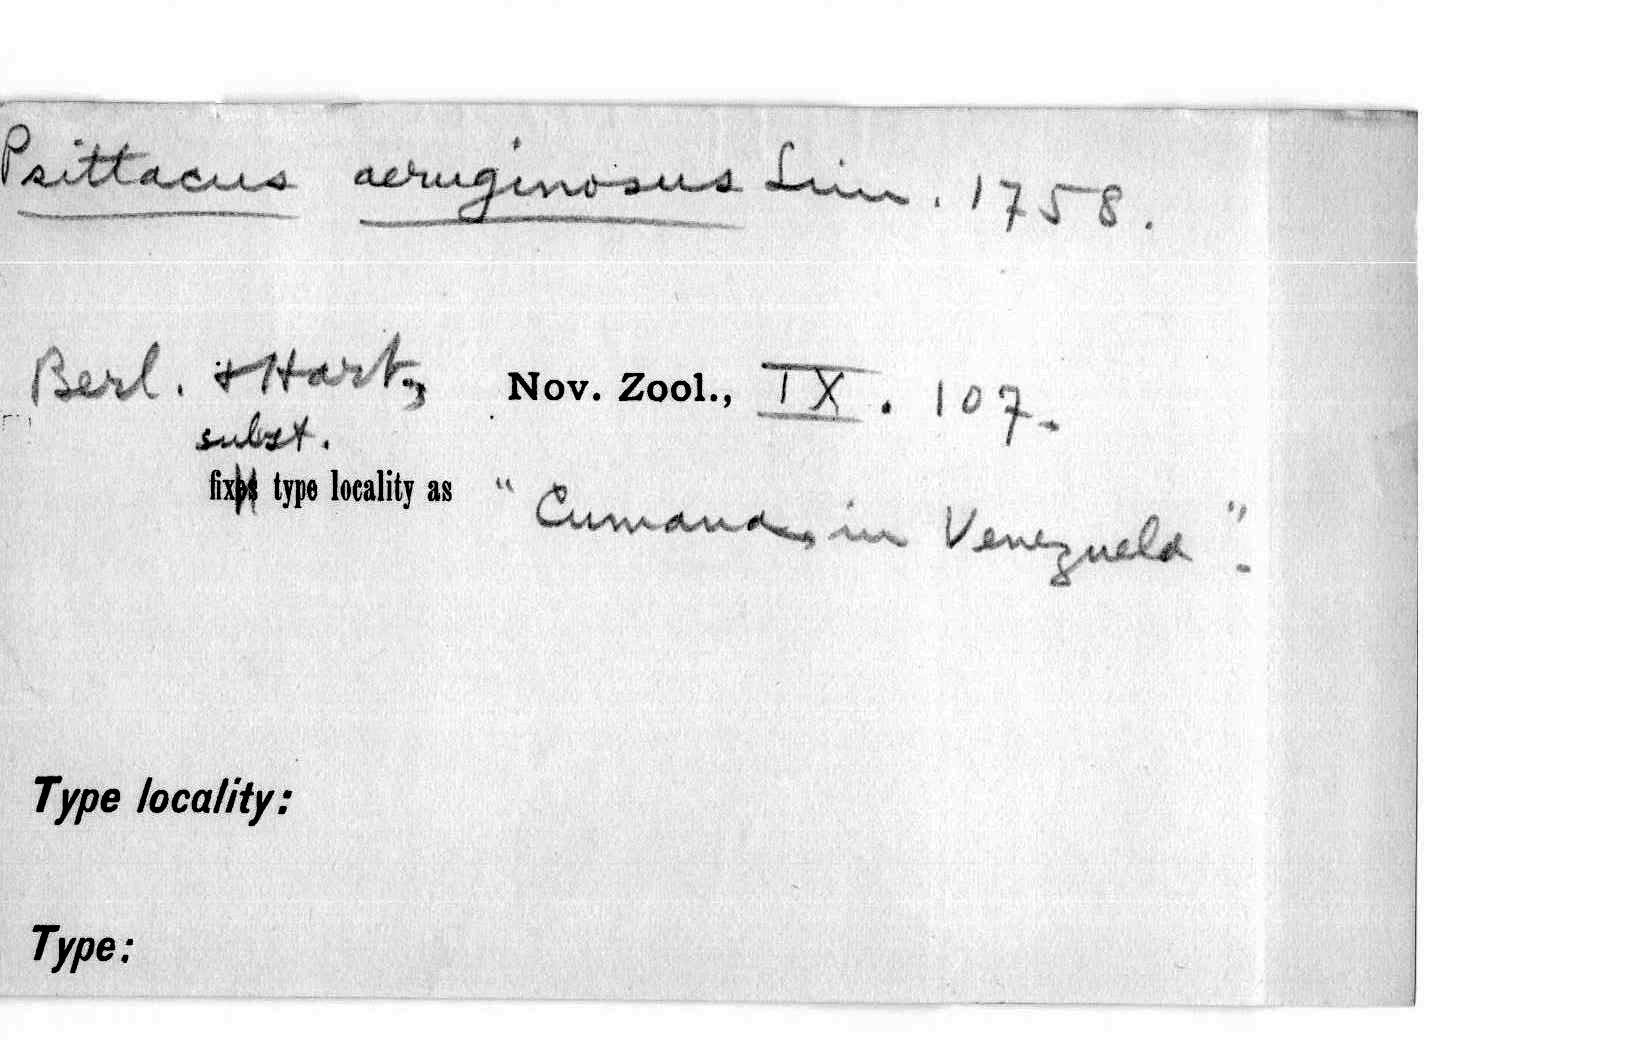 Psittacus aeruginosus Linn. 1758.
Berl. & Hart., Nov. Zool., IX. 107.
subst.
fix type locality as "Cumana, in Venezuela".
Type locality:
Type: